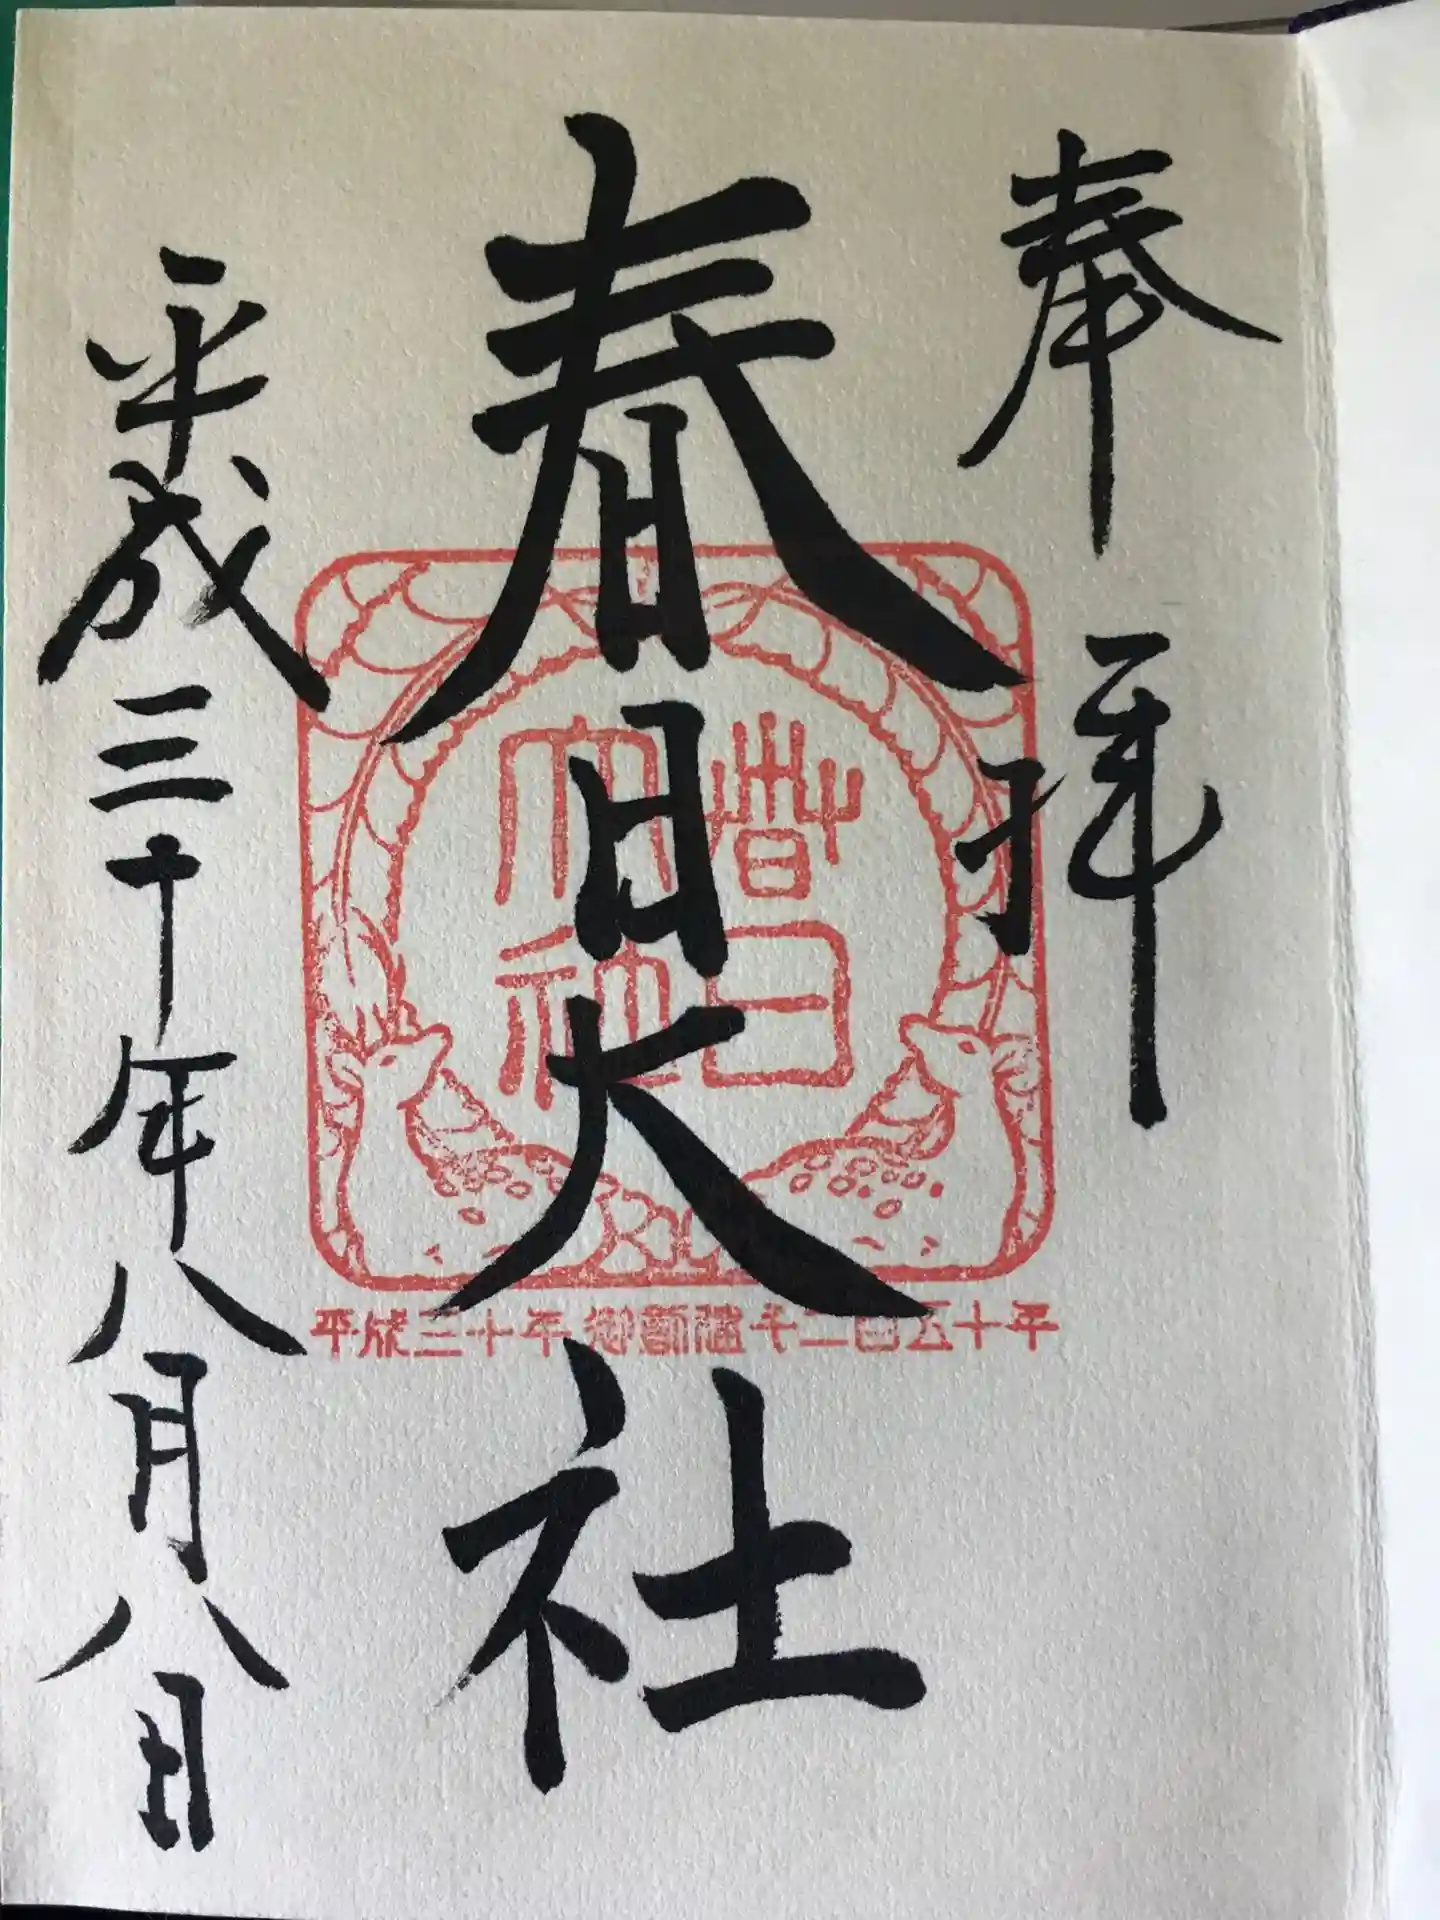 奉拝
春日大社
平成三十年八月八日
春日
大社
平成三十年 御創建 千二百五十年